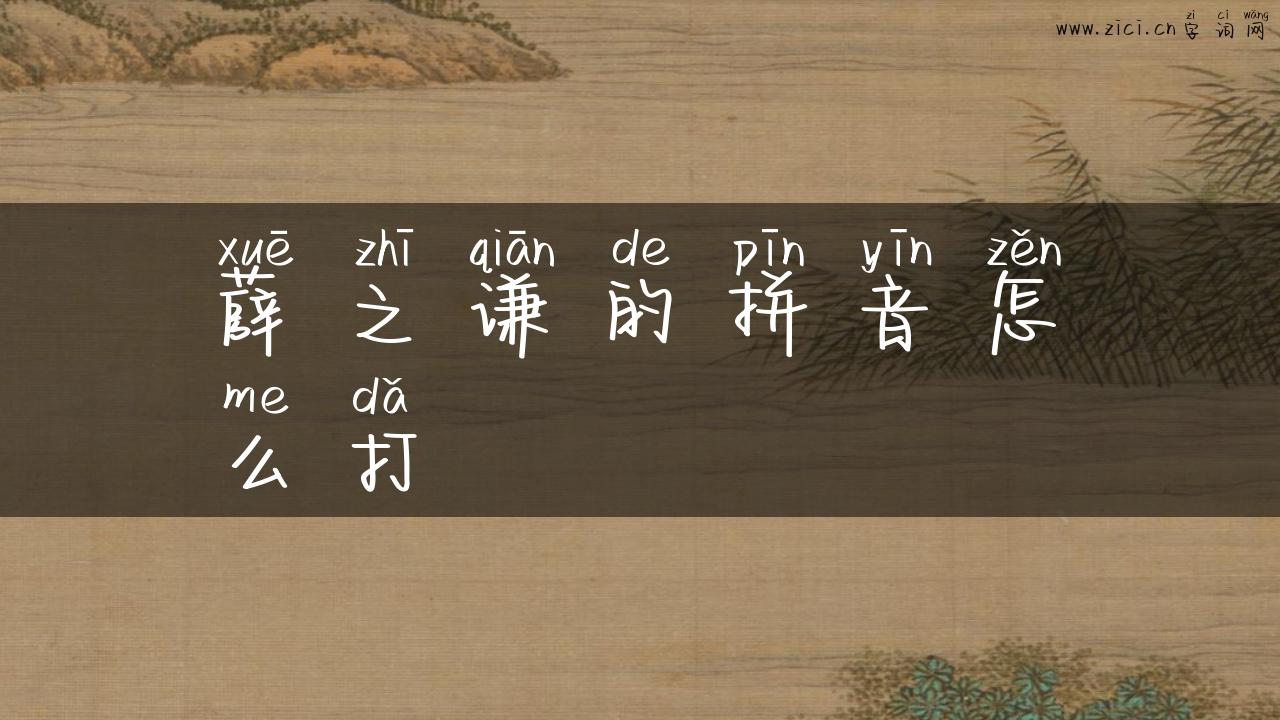 zì cí wǎng
www.zici.cn 字词网
xuē zhī qiān de pīn yīn zěn
薛之谦的拼音怎
me dǎ
么打